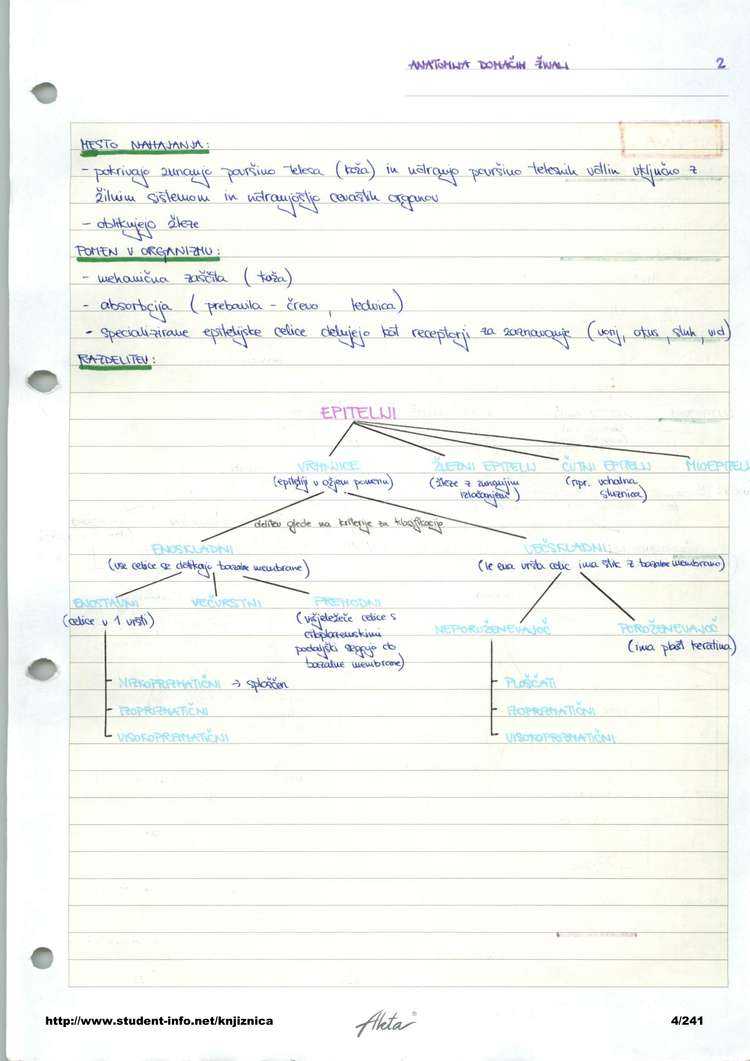 ANATOMIJA DOMAČIH ŽIVALI 2
MESTO NAHAJANJA:
- pokrivajo zunanjo površino telesa (koža) in notranjo površino telesnih votlin vključno z
žilnim sistemom in notranjostjo cevastih organov
- oblikujejo žleze
POMEN V ORGANIZMU:
- mehanična zaščita (koža)
- absorbcija (prebavila - črevo, ledvica)
- specializirane epitelijske celice delujejo kot receptorji za zaznavanje (vonj, okus, sluh, vid)
RAZDELITEV:
EPITELIJI
VRHNJICE ŽLEZNI EPITELIJ ČUTNI EPITELIJ MIOEPITELIJ
(epitelij v ožjem pomenu) (žleze z zunanjim (npr. vohalna
izločanjem) sluznica)
delitev glede na kriterije za klasifikacijo
ENOSKLADNI VEČSKLADNI
(vse celice se dotikajo bazalne membrane) (le ena vrsta celic ima stik z bazalno membrano)
ENOSTAVNI VEČVRSTNI PREHODNI
(celice v 1 vrsti) (višjeležeče celice s
citoplazemskimi
podaljški segajo do
bazalne membrane)
NEPOROŽENEVAJOČ POROŽENEVAJOČ
(ima plast keratina)
NIZKOPRIZMATIČNI → sploščen PLOŠČATI
IZOPRIZMATIČNI IZOPRIZMATIČNI
VISOKOPRIZMATIČNI VISOKOPRIZMATIČNI
http://www.student-info.net/knjiznica Akta 4/241